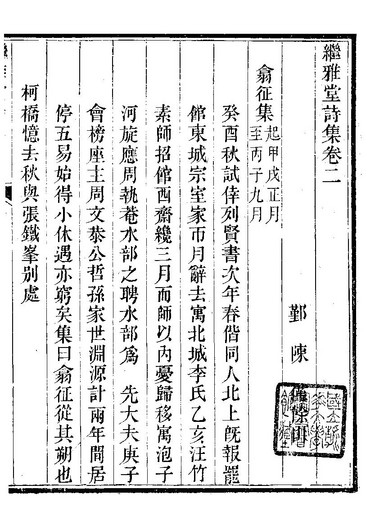 繼雅堂詩集卷二
鄞 陳
翁征集起甲戌正月至丙子九月
癸酉秋試倖列賢書次年春偕同人北上旣報罷
館東城宗室家帀月辭去寓北城李氏乙亥汪竹
素師招館酉齋纔三月而師以內憂歸移寓泡子
河旋應周執菴水部之聘水部爲 先大夫庚子
會榜座主周文恭公哲孫家世淵源計兩年間居
停五易始得小休遇亦窮矣集曰翁征從其朔也
柯橋憶去秋與張鐵峯別處